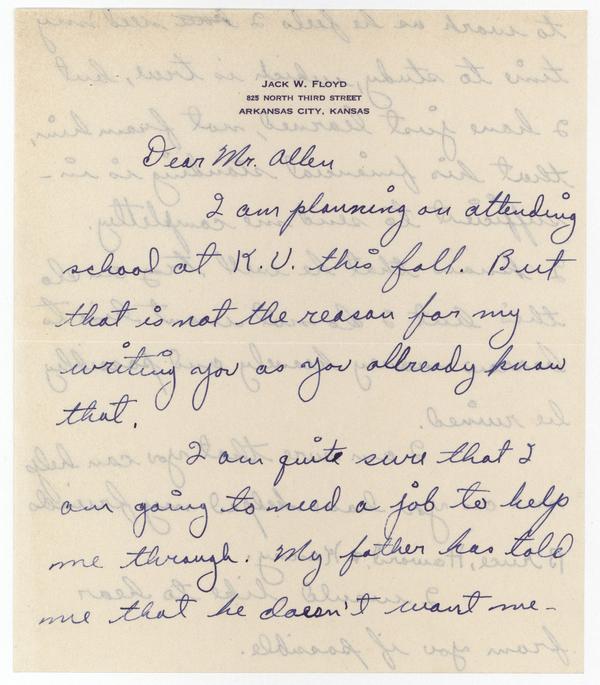 JACK W. FLOYD
825 NORTH THIRD STREET
ARKANSAS CITY, KANSAS
Dear Mr. Allen
I am planning on attending
school at K.U. this fall. But
that is not the reason for my
writing you as you allready know
that.
I am quite sure that I
am going to need a job to help
me through. My father has told
me that he doesn't want me-